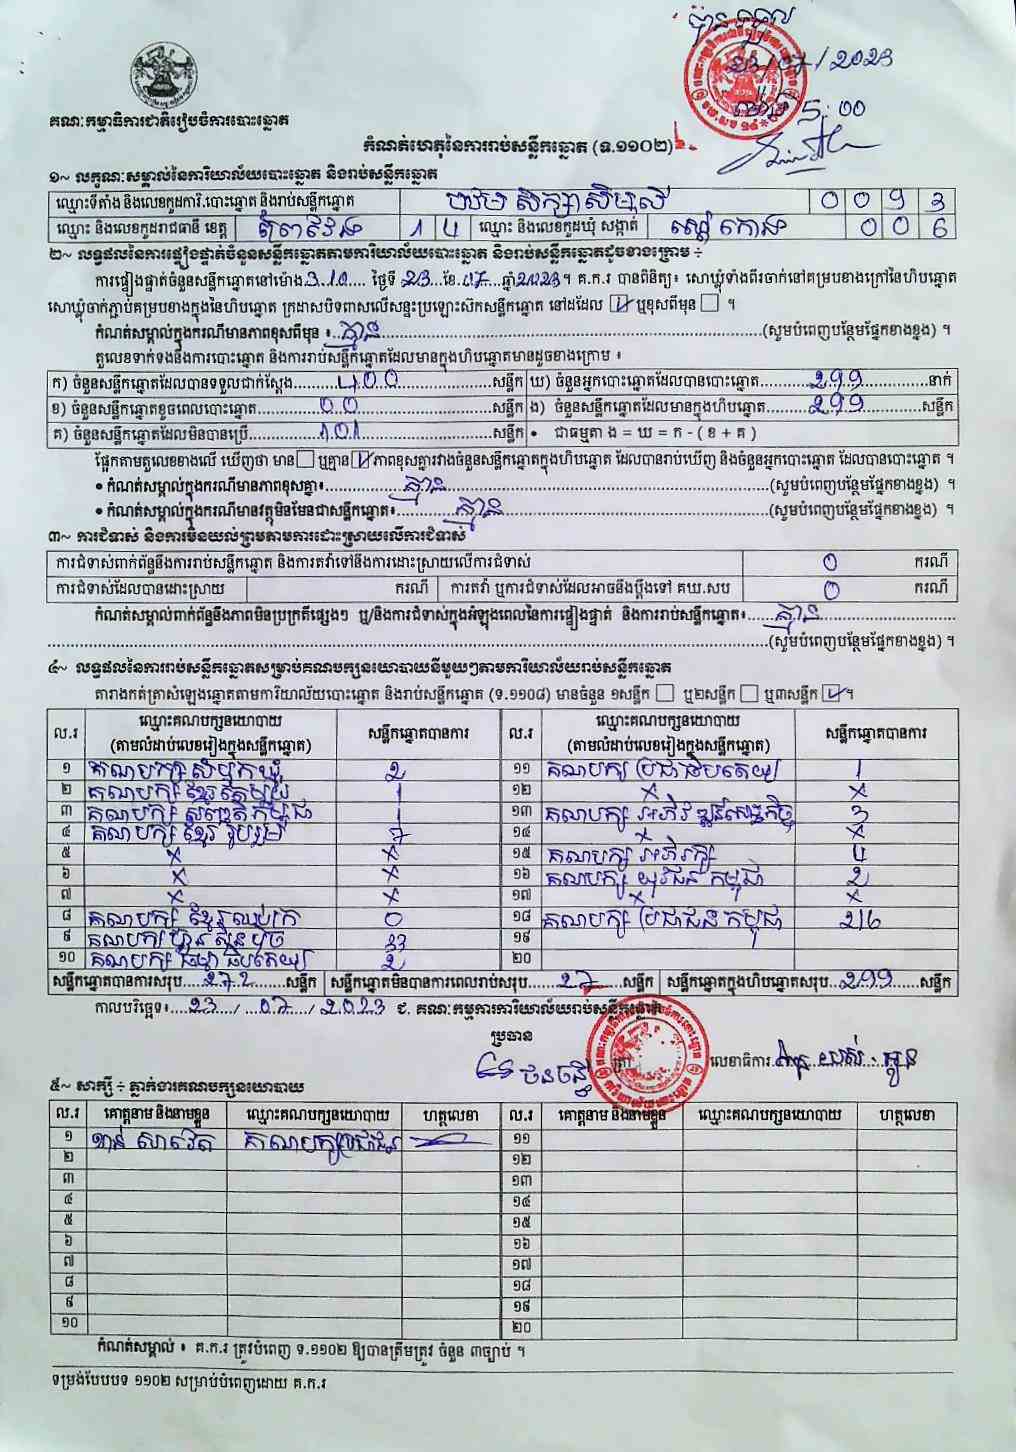 បានឃើញ
23/07/2023
ម៉ោង 5:00
គណៈកម្មាធិការជាតិរៀបចំការបោះឆ្នោត
កំណត់ហេតុនៃការរាប់សន្លឹកឆ្នោត (ទ.១១០២)
១~ លក្ខណៈសម្គាល់នៃការិយាល័យបោះឆ្នោត និងរាប់សន្លឹកឆ្នោត
ឈ្មោះទីតាំង និងលេខកូដការិ.បោះឆ្នោត និងរាប់សន្លឹកឆ្នោត 0 0 9 3
ឈ្មោះ និងលេខកូដរាជធានី ខេត្ត ព្រៃវែង 1 4 ឈ្មោះ និងលេខកូដឃុំ សង្កាត់ 0 0 6
២~ លទ្ធផលនៃការផ្ទៀងផ្ទាត់ចំនួនសន្លឹកឆ្នោតតាមការិយាល័យបោះឆ្នោត និងរាប់សន្លឹកឆ្នោតដូចខាងក្រោម ÷
ការផ្ទៀងផ្ទាត់ចំនួនសន្លឹកឆ្នោតនៅម៉ោង 3:10 ថ្ងៃទី 23 ខែ 07 ឆ្នាំ 2023 ។ គ.ក.រ បានពិនិត្យ៖ សោឃ្លុំទាំងពីរចាក់នៅគម្របខាងក្រៅនៃហិបឆ្នោត
សោឃ្លុំចាក់ភ្ជាប់គម្របខាងក្នុងនៃហិបឆ្នោត ក្រដាសបិទពាសលើសន្ទះប្រឡោះស៊កសន្លឹកឆ្នោត នៅដដែល ☑ ឬខុសពីមុន ☐ ។
កំណត់សម្គាល់ក្នុងករណីមានភាពខុសពីមុន ៖ គ្មាន (សូមបំពេញបន្ថែមផ្នែកខាងខ្នង) ។
តួលេខទាក់ទងនឹងការបោះឆ្នោត និងការរាប់សន្លឹកឆ្នោតដែលមានក្នុងហិបឆ្នោតមានដូចខាងក្រោម ៖
ក) ចំនួនសន្លឹកឆ្នោតដែលបានទទួលជាក់ស្តែង 400 សន្លឹក ឃ) ចំនួនអ្នកបោះឆ្នោតដែលបានបោះឆ្នោត 299 នាក់
ខ) ចំនួនសន្លឹកឆ្នោតខូចពេលបោះឆ្នោត 00 សន្លឹក ង) ចំនួនសន្លឹកឆ្នោតដែលមានក្នុងហិបឆ្នោត 299 សន្លឹក
គ) ចំនួនសន្លឹកឆ្នោតដែលមិនបានប្រើ 101 សន្លឹក • ជាធម្មតា ង = ឃ = ក - ( ខ + គ )
ផ្អែកតាមតួលេខខាងលើ ឃើញថា មាន ☐ ឬគ្មាន ☑ ភាពខុសគ្នារវាងចំនួនសន្លឹកឆ្នោតក្នុងហិបឆ្នោត ដែលបានរាប់ឃើញ និងចំនួនអ្នកបោះឆ្នោត ដែលបានបោះឆ្នោត ។
• កំណត់សម្គាល់ក្នុងករណីមានភាពខុសគ្នា៖ គ្មាន (សូមបំពេញបន្ថែមផ្នែកខាងខ្នង) ។
• កំណត់សម្គាល់ក្នុងករណីមានវត្ថុមិនមែនជាសន្លឹកឆ្នោត៖ គ្មាន (សូមបំពេញបន្ថែមផ្នែកខាងខ្នង) ។
៣~ ការជំទាស់ និងការមិនយល់ព្រមតាមការដោះស្រាយលើការជំទាស់
ការជំទាស់ពាក់ព័ន្ធនឹងការរាប់សន្លឹកឆ្នោត និងការតវ៉ាទៅនឹងការដោះស្រាយលើការជំទាស់ 0 ករណី
ការជំទាស់ដែលបានដោះស្រាយ ករណី ការតវ៉ា ឬការជំទាស់ដែលអាចនឹងប្តឹងទៅ គឃ.សប 0 ករណី
កំណត់សម្គាល់ពាក់ព័ន្ធនឹងភាពមិនប្រក្រតីផ្សេងៗ ឬ/និងការជំទាស់ក្នុងអំឡុងពេលនៃការផ្ទៀងផ្ទាត់ និងការរាប់សន្លឹកឆ្នោត៖ គ្មាន
(សូមបំពេញបន្ថែមផ្នែកខាងខ្នង) ។
៤~ លទ្ធផលនៃការរាប់សន្លឹកឆ្នោតសម្រាប់គណបក្សនយោបាយនីមួយៗតាមការិយាល័យរាប់សន្លឹកឆ្នោត
តារាងកត់ត្រាសំឡេងឆ្នោតតាមការិយាល័យបោះឆ្នោត និងរាប់សន្លឹកឆ្នោត (ទ.១១០៨) មានចំនួន ១សន្លឹក ☐ ឬ២សន្លឹក ☐ ឬ៣សន្លឹក ☑ ។
ល.រ ឈ្មោះគណបក្សនយោបាយ (តាមលំដាប់លេខរៀងក្នុងសន្លឹកឆ្នោត) សន្លឹកឆ្នោតបានការ ល.រ ឈ្មោះគណបក្សនយោបាយ (តាមលំដាប់លេខរៀងក្នុងសន្លឹកឆ្នោត) សន្លឹកឆ្នោតបានការ
១ គណបក្ស 2 ១១ គណបក្ស ប្រជាធិបតេយ្យ 1
២ គណបក្ស ខ្មែរតែមួយ 1 ១២ × ×
៣ គណបក្ស សញ្ជាតិកម្ពុជា 1 ១៣ គណបក្ស 3
៤ គណបក្ស ខ្មែរ រួបរួម 7 ១៤ × ×
៥ × × ១៥ គណបក្ស 4
៦ × × ១៦ គណបក្ស យុវជន កម្ពុជា 2
៧ × × ១៧ × ×
៨ គណបក្ស ខ្មែរឈប់ក្រ 0 ១៨ គណបក្ស ប្រជាជន កម្ពុជា 216
៩ គណបក្ស ហ៊្វុនស៊ិនប៉ិច 33 ១៩
១០ គណបក្ស ធម្មាធិបតេយ្យ 2 ២០
សន្លឹកឆ្នោតបានការសរុប 272 សន្លឹក សន្លឹកឆ្នោតមិនបានការពេលរាប់សរុប 27 សន្លឹក សន្លឹកឆ្នោតក្នុងហិបឆ្នោតសរុប 299 សន្លឹក
កាលបរិច្ឆេទ៖ 23 / 07 / 2023 ជ. គណៈកម្មការការិយាល័យរាប់សន្លឹកឆ្នោត
ប្រធាន
លេខាធិការ
៥~ សាក្សី ÷ ភ្នាក់ងារគណបក្សនយោបាយ
ល.រ គោត្តនាម និងនាមខ្លួន ឈ្មោះគណបក្សនយោបាយ ហត្ថលេខា ល.រ គោត្តនាម និងនាមខ្លួន ឈ្មោះគណបក្សនយោបាយ ហត្ថលេខា
១ គណបក្សប្រជាជន ១១
២ ១២
៣ ១៣
៤ ១៤
៥ ១៥
៦ ១៦
៧ ១៧
៨ ១៨
៩ ១៩
១០ ២០
កំណត់សម្គាល់ ៖ គ.ក.រ ត្រូវបំពេញ ទ.១១០២ ឱ្យបានត្រឹមត្រូវ ចំនួន ៣ច្បាប់ ។
ទម្រង់បែបបទ ១១០២ សម្រាប់បំពេញដោយ គ.ក.រ